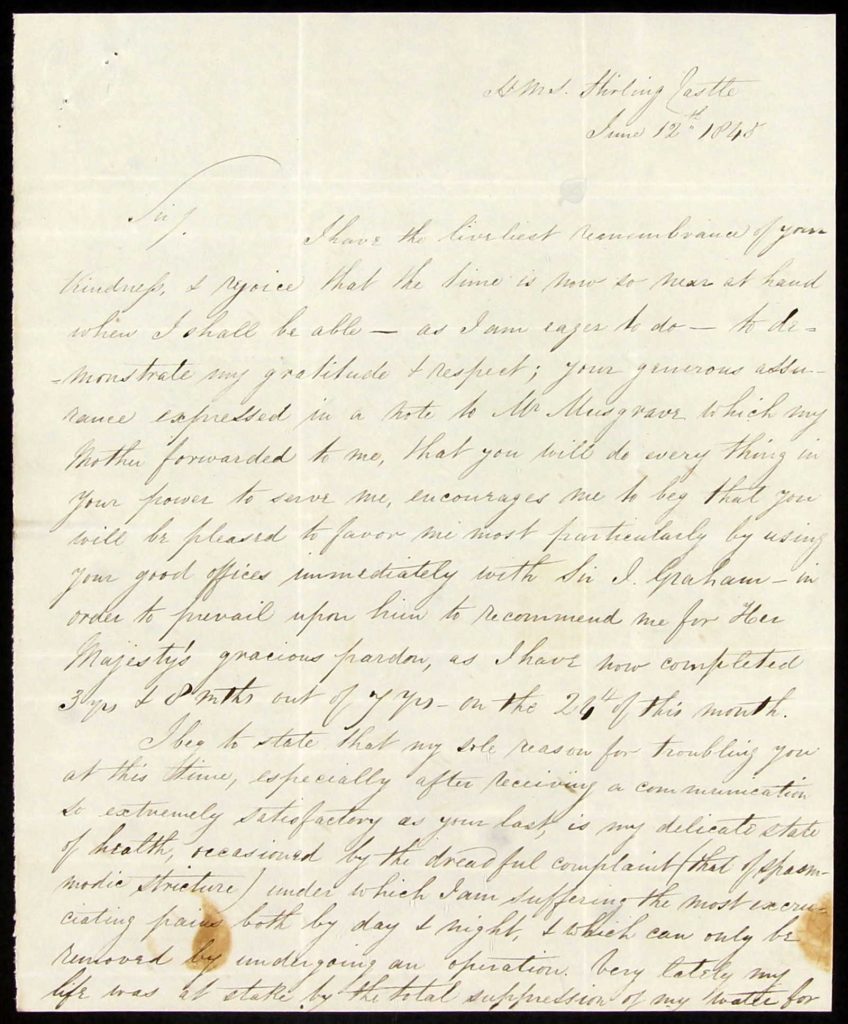 H.M.S. Stirling Castle
June 12th 1845
Sir,
I have the liveliest remembrance of your
kindness, & rejoice that the time is now so near at hand
when I shall be able — as I am eager to do — to de-
-monstrate my gratitude & respect; your generous assu-
rance expressed in a note to Mr Musgrave which my
Mother forwarded to me, that you will do every thing in
your power to serve me, encourages me to beg that you
will be pleased to favor me most particularly by using
your good offices immediately with Sir J. Graham — in
order to prevail upon him to recommend me for Her
Majesty's gracious pardon, as I have now completed
3 yrs & 8 mths out of 7 yrs — on the 24th of this month.
I beg to state that my sole reason for troubling you
at this time, especially after receiving a communication
so extremely satisfactory as your last, is my delicate state
of health, occasioned by the dreadful complaint (that of spasm-
modic stricture) under which I am suffering the most excru-
ciating pains both by day & night, & which can only be
removed by undergoing an operation. Very lately my
life was at stake by the total suppression of my water for